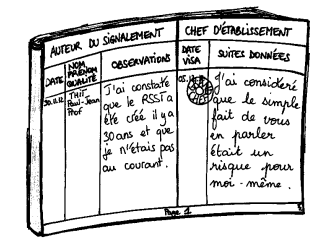 AUTEUR DU SIGNALEMENT
CHEF D'ÉTABLISSEMENT
DATE
NOM
PRÉNOM
QUALITÉ
OBSERVATIONS
DATE
VISA
SUITES DONNÉES
30.11.12
THIT
Paul-Jean
Prof
J'ai constaté
que le RSST a
été créé il y a
30 ans et que
je n'étais pas
au courant.
J'ai considéré
que le simple
fait de vous
en parler
était un
risque pour
moi-même.
Page 1